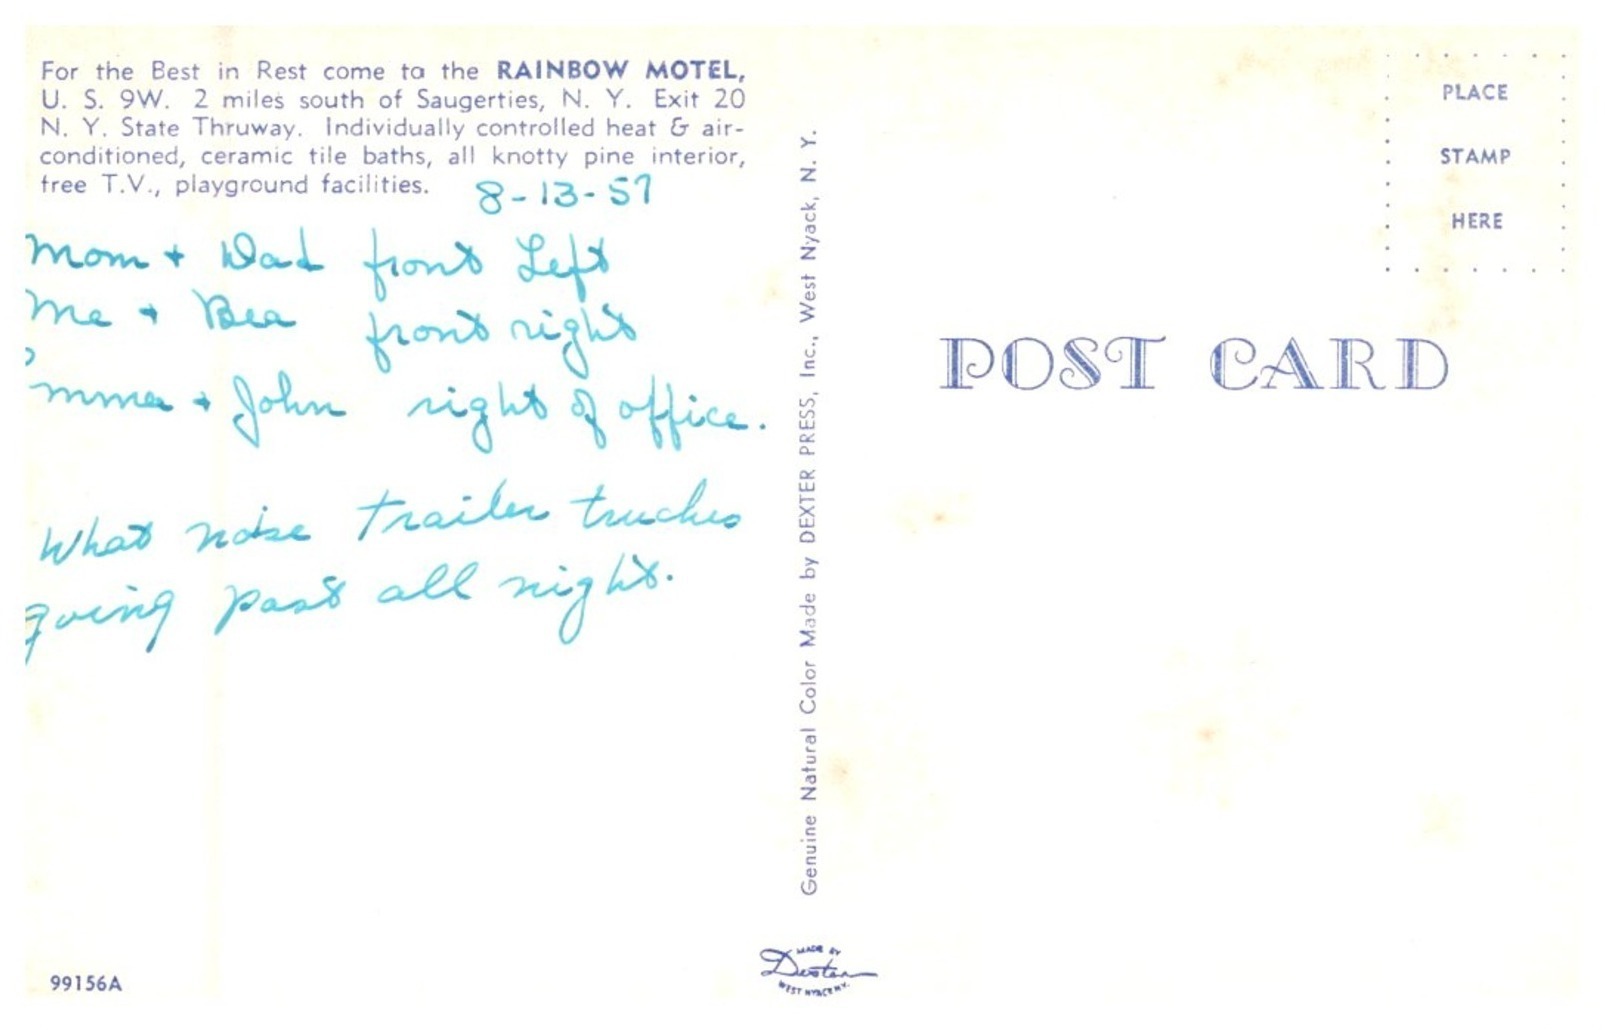 For the Best in Rest come to the RAINBOW MOTEL,
U. S. 9W. 2 miles south of Saugerties, N. Y. Exit 20
N. Y. State Thruway. Individually controlled heat & air-
conditioned, ceramic tile baths, all knotty pine interior,
free T.V., playground facilities.
8-13-57
Mom + Dad front Left
Me + Bea front right
Emma + John right of office.
What noise trailer trucks
going past all night.
99156A
Genuine Natural Color Made by DEXTER PRESS, Inc., West Nyack, N. Y.
MADE BY
Dexter
WEST NYACK N.Y.
PLACE
STAMP
HERE
POST CARD